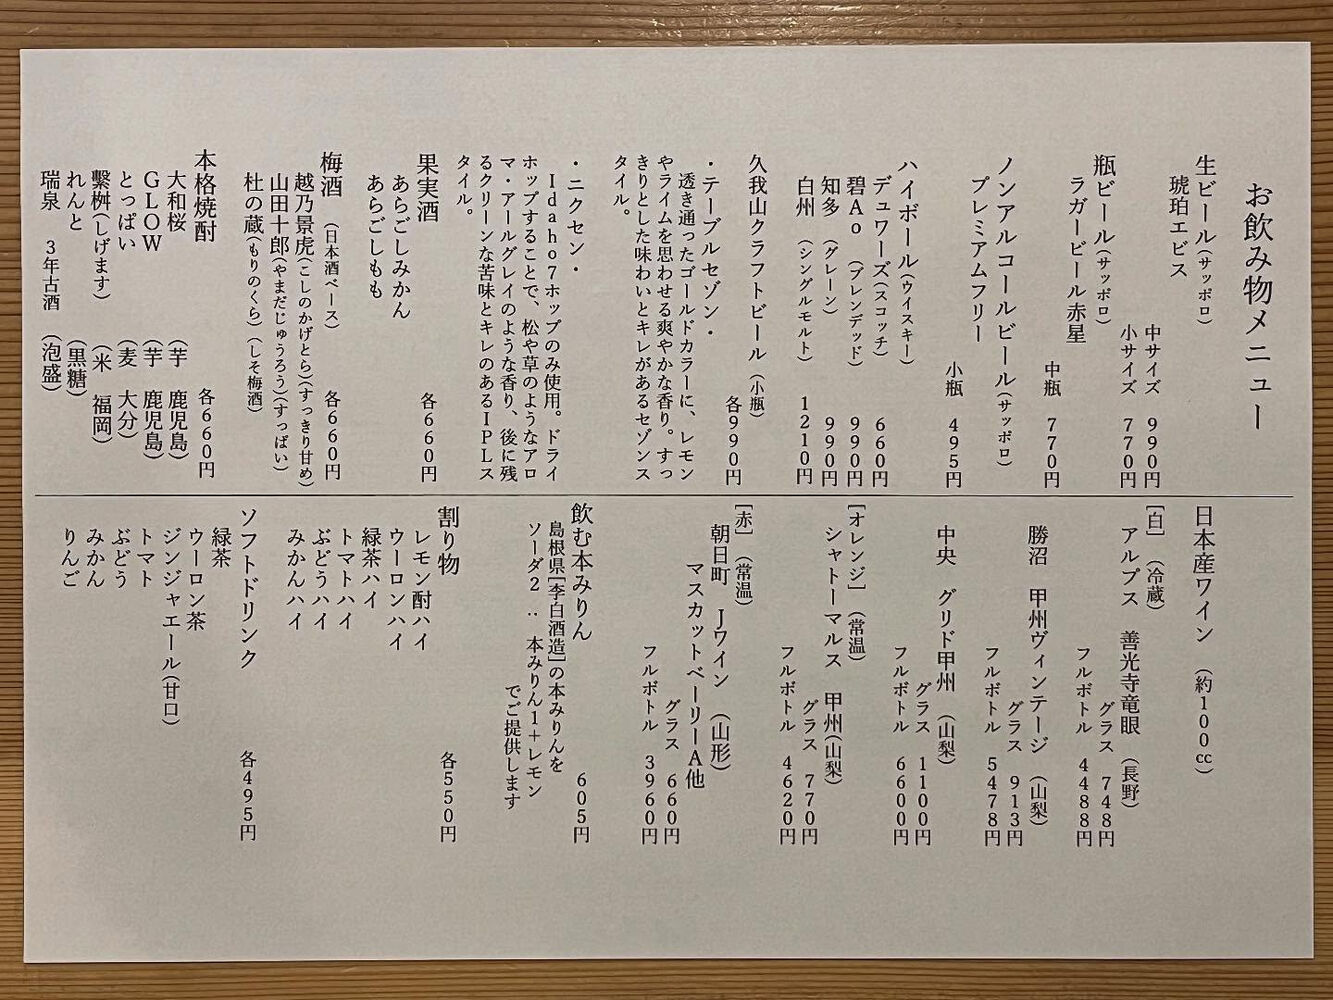 お飲み物メニュー
生ビール(サッポロ)
琥珀エビス
中サイズ 990円
小サイズ 770円
瓶ビール(サッポロ)
ラガービール赤星
中瓶 770円
ノンアルコールビール(サッポロ)
プレミアムフリー
小瓶 495円
ハイボール(ウイスキー)
デュワーズ(スコッチ) 660円
碧Ao (ブレンデッド) 990円
知多 (グレーン) 990円
白州 (シングルモルト) 1210円
久我山クラフトビール(小瓶)
各990円
・テーブルセゾン・
透き通ったゴールドカラーに、レモン
やライムを思わせる爽やかな香り。すっ
きりとした味わいとキレがあるセゾンス
タイル。
・ニクセン・
Idaho7ホップのみ使用。ドライ
ホップすることで、松や草のようなアロ
マ・アールグレイのような香り、後に残
るクリーンな苦味とキレのあるIPLス
タイル。
果実酒 各660円
あらごしみかん
あらごしもも
梅酒 (日本酒ベース) 各660円
越乃景虎(こしのかげとら)(すっきり甘め)
山田十郎(やまだじゅうろう)(すっぱい)
杜の蔵(もりのくら)(しそ梅酒)
本格焼酎 各660円
大和桜 (芋 鹿児島)
GLOW (芋 鹿児島)
とっぱい (麦 大分)
繋桝(しげます) (米 福岡)
れんと (黒糖)
瑞泉 3年古酒 (泡盛)
日本産ワイン (約100cc)
[白] (冷蔵)
アルプス 善光寺竜眼 (長野)
グラス 748円
フルボトル 4488円
勝沼 甲州ヴィンテージ (山梨)
グラス 913円
フルボトル 5478円
中央 グリド甲州 (山梨)
グラス 1100円
フルボトル 6600円
[オレンジ] (常温)
シャトーマルス 甲州(山梨)
グラス 770円
フルボトル 4620円
[赤] (常温)
朝日町 Jワイン (山形)
マスカットベーリーA他
グラス 660円
フルボトル 3960円
飲む本みりん 605円
島根県[李白酒造]の本みりんを
ソーダ2:本みりん1+レモン
でご提供します
割り物 各550円
レモン酎ハイ
ウーロンハイ
緑茶ハイ
トマトハイ
ぶどうハイ
みかんハイ
ソフトドリンク 各495円
緑茶
ウーロン茶
ジンジャエール(甘口)
トマト
ぶどう
みかん
りんご